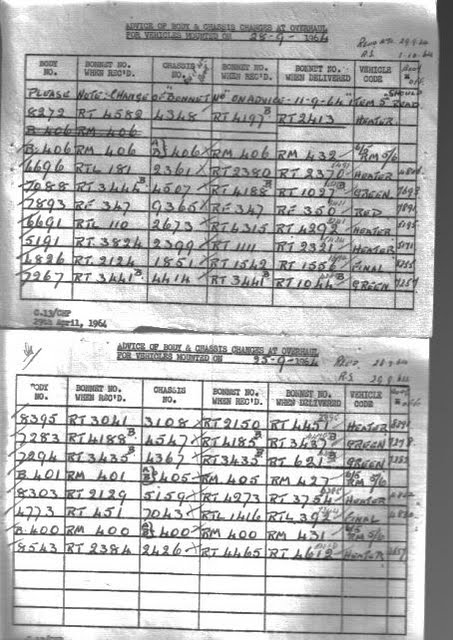 ADVICE OF BODY & CHASSIS CHANGES AT OVERHAUL
FOR VEHICLES MOUNTED ON 28-9-1964
BODY NO. BONNET NO. WHEN REC'D. CHASSIS NO. BONNET NO. WHEN REC'D. BONNET NO. WHEN DELIVERED VEHICLE CODE
PLEASE NOTE: CHANGE OF "BONNET NO" ON ADVICE - 11-9-64 ITEM 5 SHOULD READ
8272 RT 4582 4348 RT 4197B RT 2413 HEATER
B 406 RM 406
B 406 RM 406 A/B 406 RM 406 RM 432 RM 5/6
6696 RTL 181 2361 RT 2380 RT 2370 HEATER
7088 RT 3444B 4507 RT 4188B RT 1027B GREEN
7893 RF 347 9365 RF 347 RF 350 RED
6691 RTL 110 2673 RT 4315 RT 4292 HEATER
5191 RT 3824 2399 RT 1111 RT 2321 HEATER
4826 RT 2124 1851 RT 1542 RT 1556 FINAL
7267 RT 3441B 4414 RT 3441B RT 1044B GREEN
C.13/CHP
29th April, 1964
ADVICE OF BODY & CHASSIS CHANGES AT OVERHAUL
FOR VEHICLES MOUNTED ON 25-9-1964
BODY NO. BONNET NO. WHEN REC'D. CHASSIS NO. BONNET NO. WHEN REC'D. BONNET NO. WHEN DELIVERED VEHICLE CODE
8395 RT 3041 3108 RT 2150 RT 4451 HEATER
7283 RT 4188B 4547 RT 4185B RT 3437B GREEN
7294 RT 3435B 4367 RT 3435B RT 631B GREEN
B 401 RM 401 A/B 405 RM 405 RM 427 RM 5/6
8303 RT 2129 5159 RT 4273 RT 3754 HEATER
4773 RT 451 7043 RTL 1416 RTL 392 FINAL
B 400 RM 400 A/B 400 RM 400 RM 431 RM 5/6
8543 RT 2384 2426 RT 4465 RT 4612 HEATER